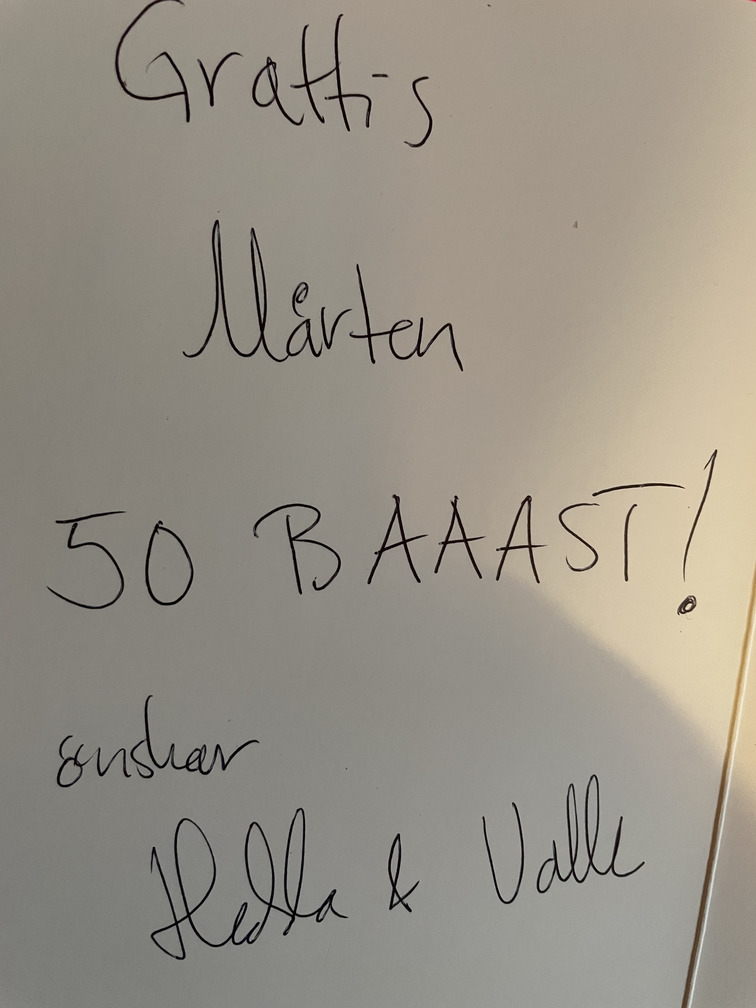 Grattis
Mårten
50 BAAAST!
önskar
Hedda & Valle